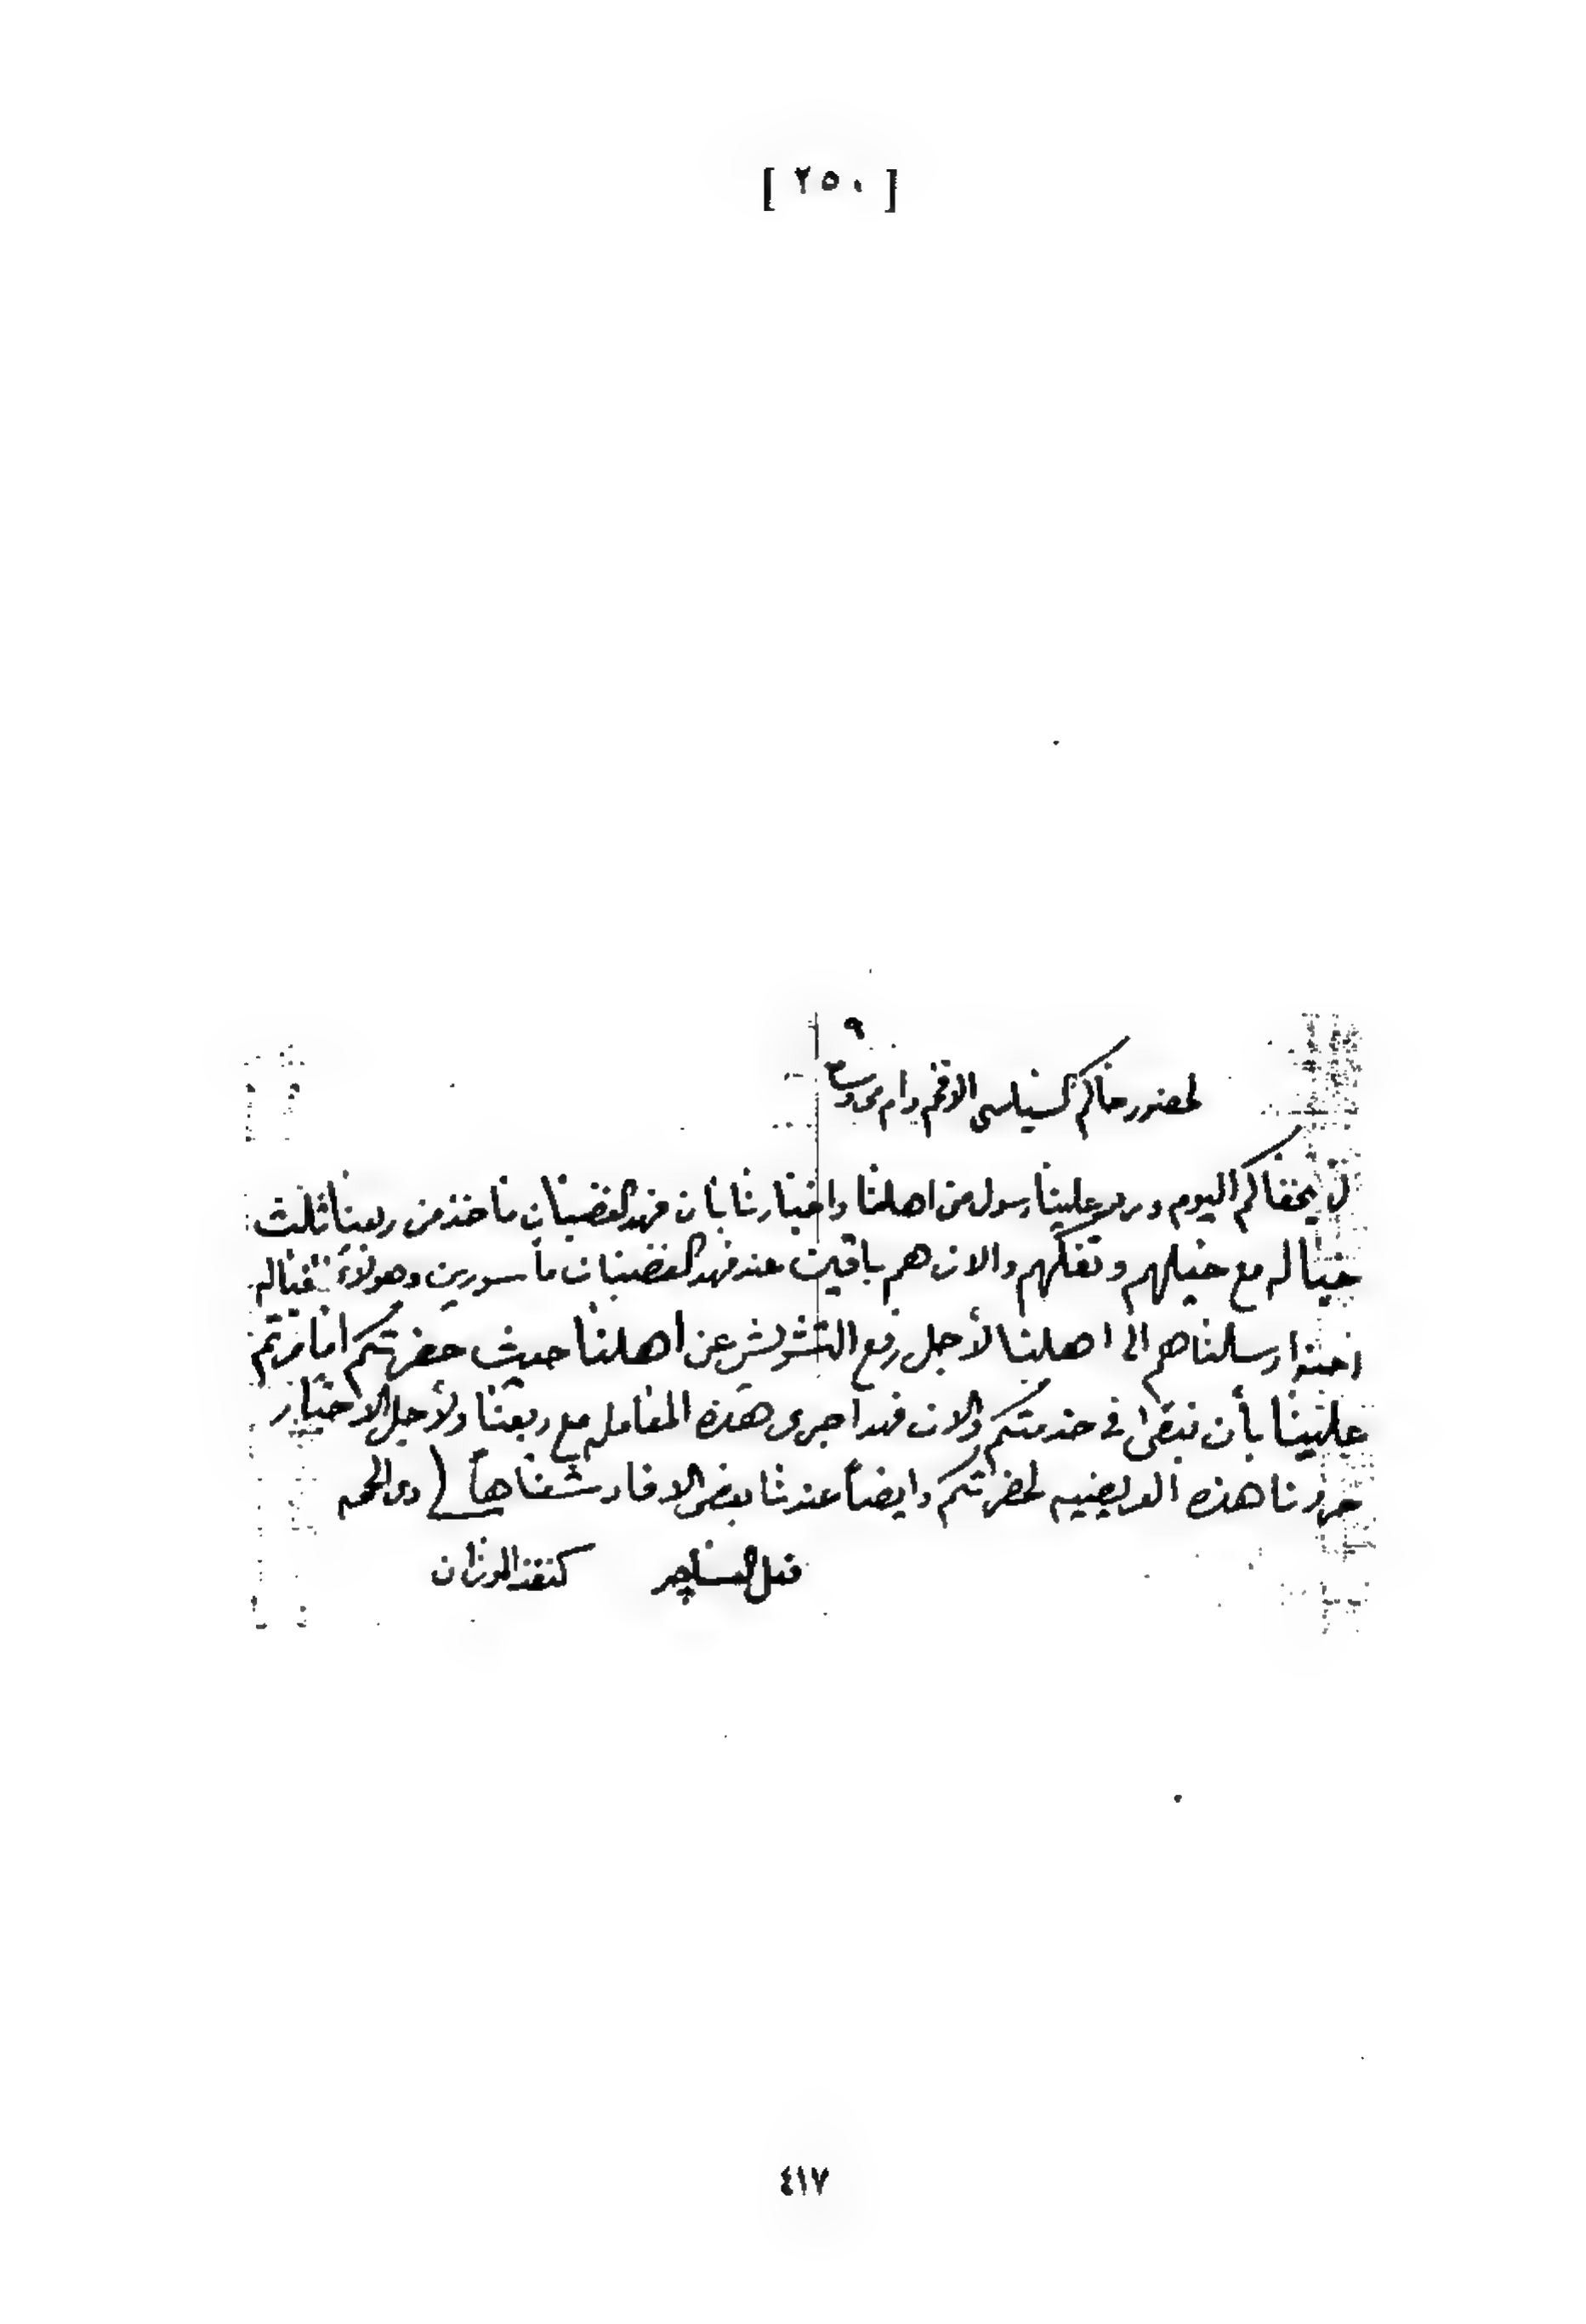 [ ٢٥٠ ]
٩
لحضور حاكم السياسي الافخم دام محروسا
لا يخفاكم اليوم ورد علينا رسول من اهلنا واخبارنا بأن فهد الغضبان ماخذ من ربعنا ثلث
خياله مع خيلهم وتفكهم والان هم باقين عند فهد الغضبان مأسورين وهولاء الخياله
احنوا رسلناهم الى اهلنا لأجل رفع التشويش عن اهلنا حيث حضرتكم امارتم
علينا بأن نبقى في خدمتكم والان فهد اجرى هذه المعامله مع ربعنا ولأجل الاخبار
حررنا هذه العريضيه لحضرتكم وايضاً عندنا بعض الافاد شفاهاً
كنعذ الموزان
٤١٧